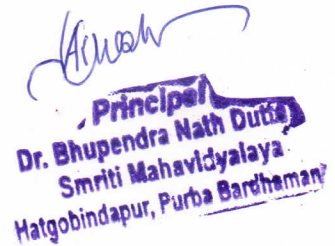 Principal
Dr. Bhupendra Nath Dutta
Smriti Mahavidyalaya
Hatgobindapur, Purba Bardhaman